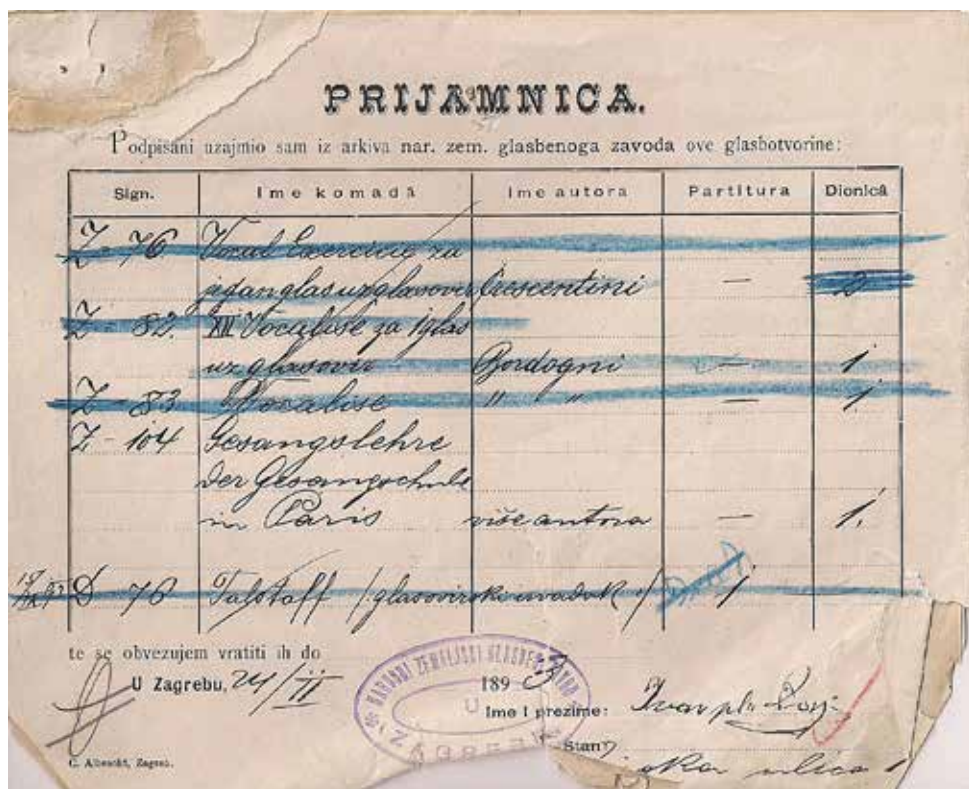 PRIJAMNICA.
Podpisani uzajmio sam iz arkiva nar. zem. glasbenoga zavoda ove glasbotvorine:
Sign. Ime komadâ Ime autora Partitura Dionicâ
Z - 76 Vocal Exercicie za
jedan glas uz glasovir Crescentini — 2
Z - 82. XII Vocalise za 1 glas
uz glasovir Bordogni — 1
Z - 83 Vocalise " " — 1
Z - 104 Gesangslehre
der Gesangschule
in Paris više autora — 1.
D 76 Falstaff / glasovirski 1
te se obvezujem vratiti ih do
U Zagrebu, 24/II 1893
NARODNI ZEMALJSKI GLASBENI ZAVOD
U
ZAGREBU
Ime i prezime: Ivan pl.
Stan
ulica 1
C. Albrecht, Zagreb.